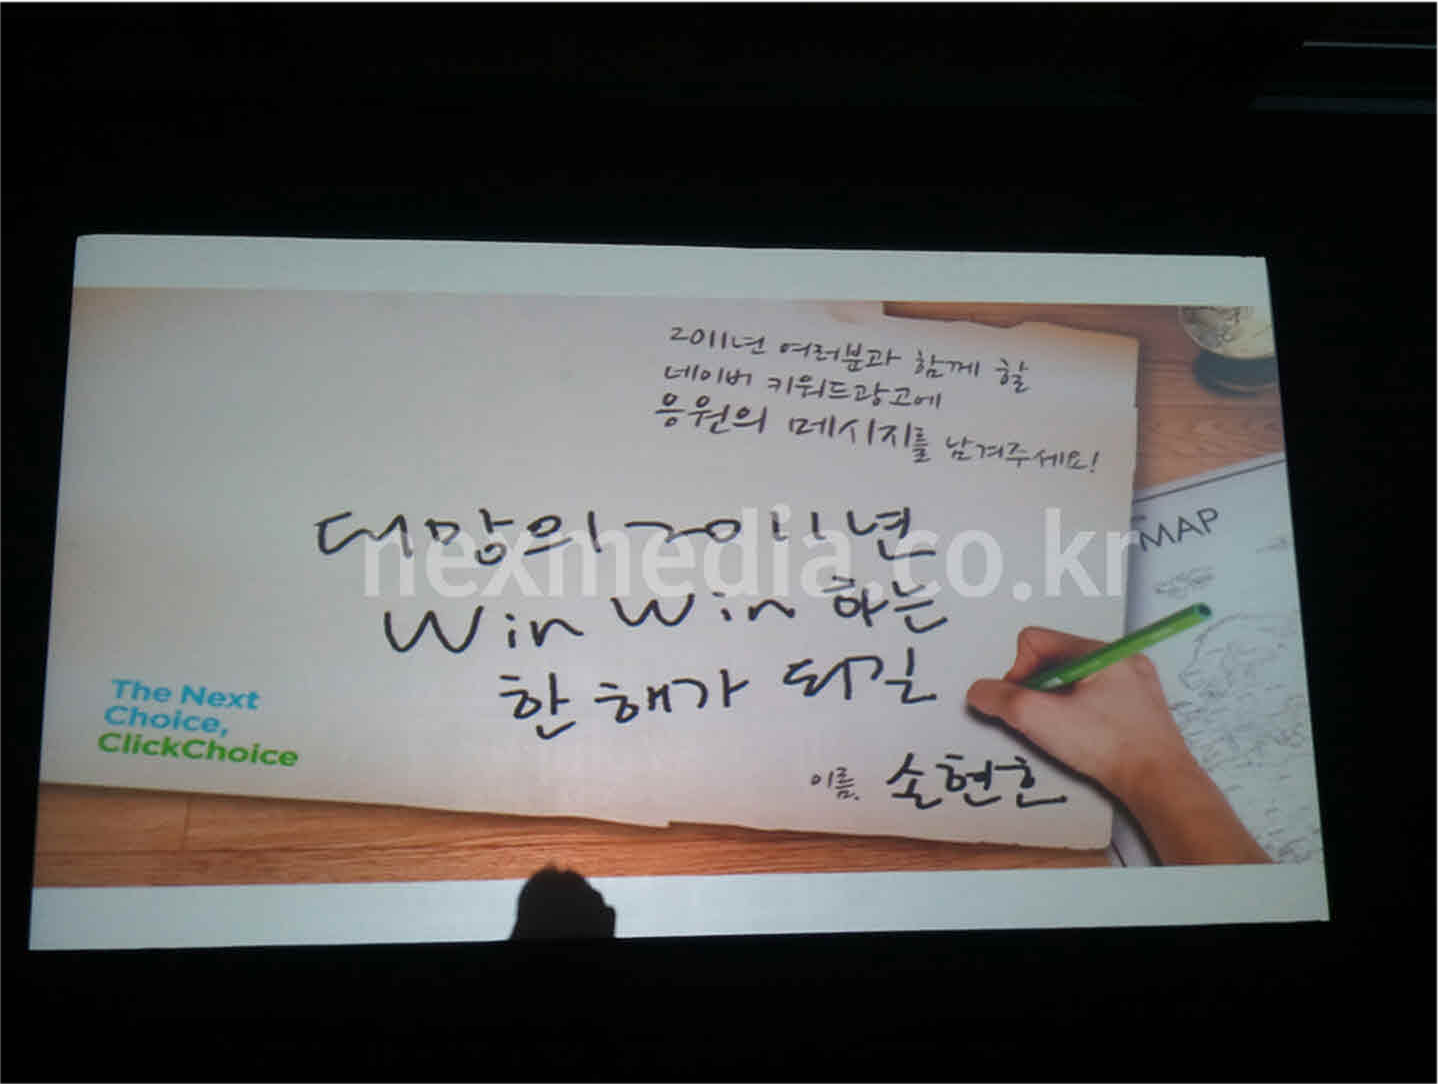 2011년 여러분과 함께 할
네이버 키워드광고에
응원의 메시지를 남겨주세요!
대망의 2011년
Win Win 하는
한 해가 되길
이름. 송현헌
The Next
Choice,
ClickChoice
MAP
nexmedia.co.kr